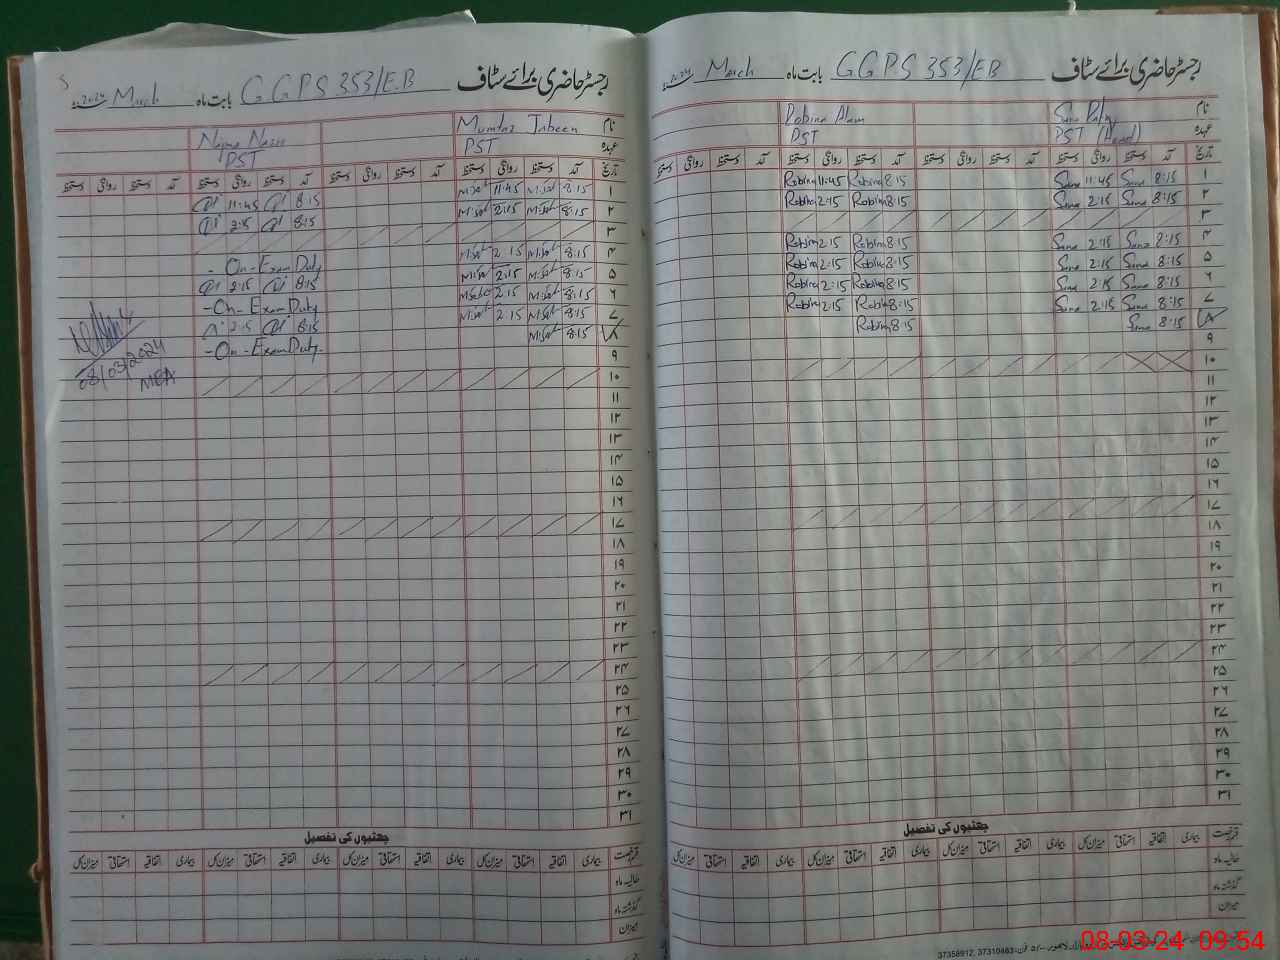 رجسٹر حاضری برائے سٹاف GGPS 353/E.B بابت ماہ March 2024
نام Mumtaz Jabeen Najma Nazir
عہدہ PST PST
تاریخ آمد دستخط روانگی دستخط آمد دستخط روانگی دستخط آمد دستخط روانگی دستخط آمد دستخط روانگی دستخط
۱ 8:15 11:45 8:15 11:45
۲ 8:15 2:15 8:15 2:15
۳
۴ 8:15 2:15 -On-Exam Duty
۵ 8:15 2:15 8:15 2:15
۶ 8:15 2:15 -On-Exam Duty
۷ 8:15 2:15 8:15 2:15
۸ 8:15 -On-Exam Duty-
۹
۱۰
۱۱
۱۲
۱۳
۱۴
۱۵
۱۶
۱۷
۱۸
۱۹
۲۰
۲۱
۲۲
۲۳
۲۴
۲۵
۲۶
۲۷
۲۸
۲۹
۳۰
۳۱
08/03/2024
MEA
چھٹیوں کی تفصیل
قسم رخصت بیماری اتفاقیہ استحقاقی میزان کل بیماری اتفاقیہ استحقاقی میزان کل بیماری اتفاقیہ استحقاقی میزان کل بیماری اتفاقیہ استحقاقی میزان کل
حالیہ ماہ
گذشتہ ماہ
میزان
رجسٹر حاضری برائے سٹاف GGPS 353/EB بابت ماہ March 2024
نام Robina Alam
عہدہ PST (Head) PST
تاریخ آمد دستخط روانگی دستخط آمد دستخط روانگی دستخط آمد دستخط روانگی دستخط آمد دستخط روانگی دستخط
۱ 8:15 Sana 11:45 Sana 8:15 Robina 11:45 Robina
۲ 8:15 Sana 2:15 Sana 8:15 Robina 2:15 Robina
۳
۴ 8:15 Sana 2:15 Sana 8:15 Robina 2:15 Robina
۵ 8:15 Sana 2:15 Sana 8:15 Robina 2:15 Robina
۶ 8:15 Sana 2:15 Sana 8:15 Robina 2:15 Robina
۷ 8:15 Sana 2:15 Sana 8:15 Robina 2:15 Robina
۸ 8:15 Sana 8:15 Robina
۹
۱۰
۱۱
۱۲
۱۳
۱۴
۱۵
۱۶
۱۷
۱۸
۱۹
۲۰
۲۱
۲۲
۲۳
۲۴
۲۵
۲۶
۲۷
۲۸
۲۹
۳۰
۳۱
چھٹیوں کی تفصیل
قسم رخصت بیماری اتفاقیہ استحقاقی میزان کل بیماری اتفاقیہ استحقاقی میزان کل بیماری اتفاقیہ استحقاقی میزان کل بیماری اتفاقیہ استحقاقی میزان کل
حالیہ ماہ
گذشتہ ماہ
میزان
لاہور فون: 37310463, 37358912
08-03-24 09:54